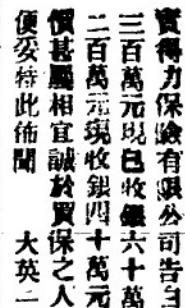 寳得力保險有限公司告白
三百萬元現已收銀六十萬
二百萬元現收銀四十萬元
價甚屬相宜誠於買保之人
便妥特此佈聞　　大英二